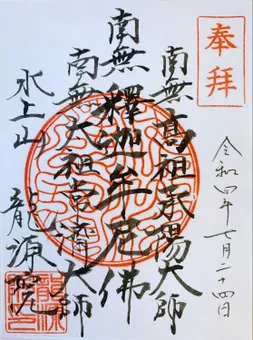 奉拝
令和四年七月二十四日
南無高祖承陽大師
南無釋迦牟尼佛
南無太祖常済大師
水上山
龍源院